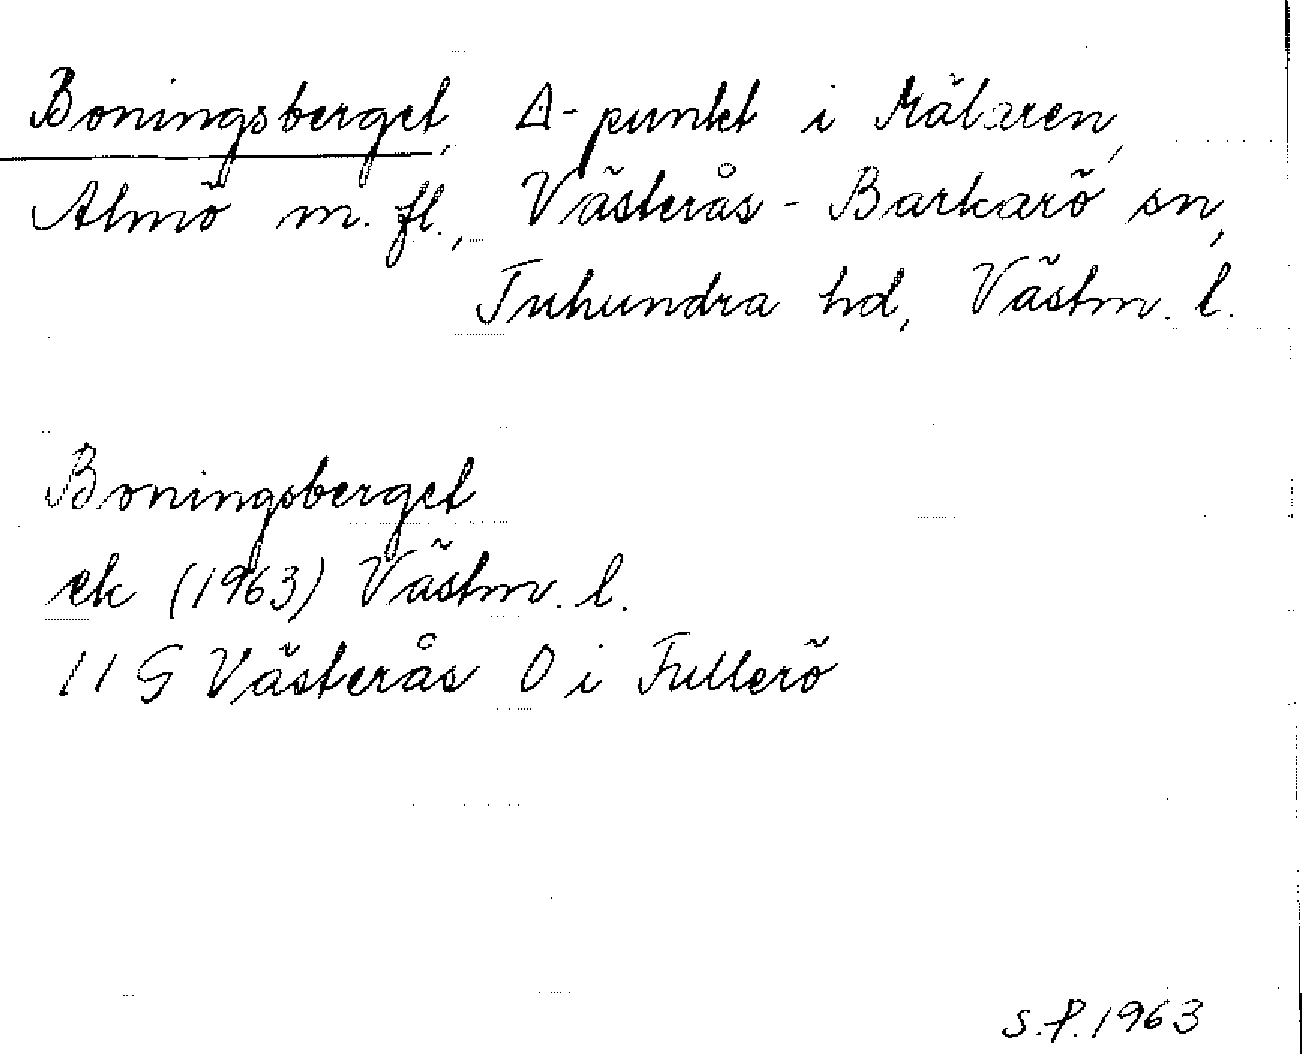 Boningsberget, Δ-punkt i Mälaren,
Almö m. fl., Västerås - Barkarö sn,
Tuhundra hd, Västm. l.
Boningsberget
ek (1963) Västm. l.
11 G Västerås O i Fullerö
S.P. 1963